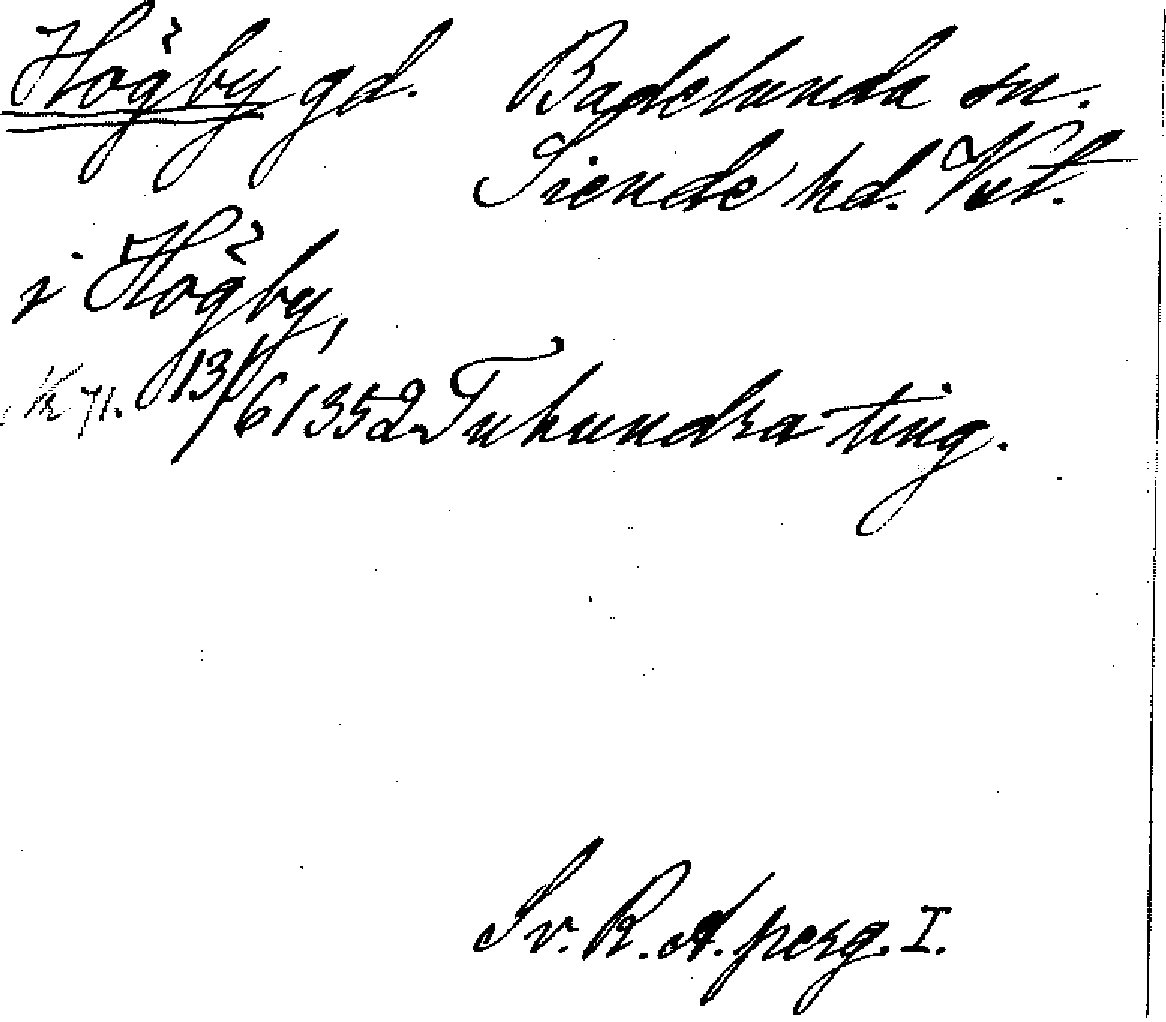 Högby gd. Badelunda sn.
Siende hd. Vstl.
i Högby,
13/6 1352 Tuhundra ting.
Sv. R. A. perg. I.